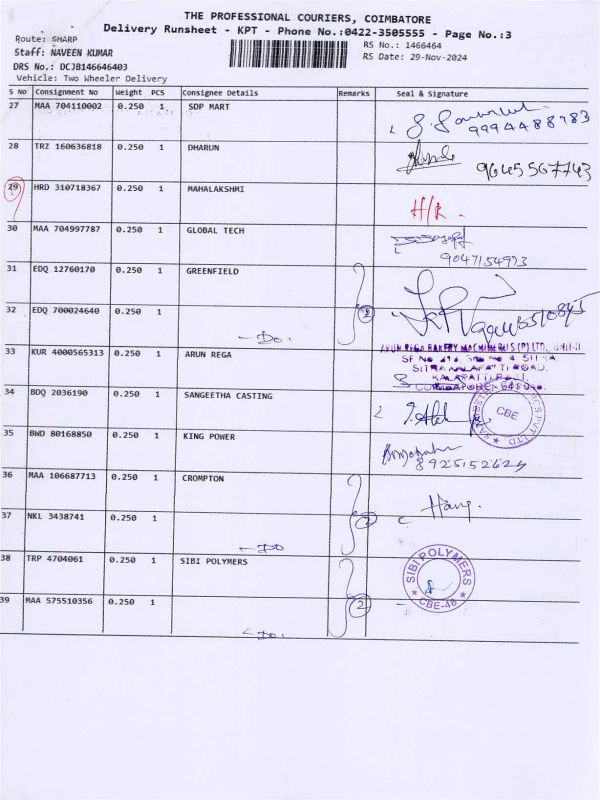 THE PROFESSIONAL COURIERS, COIMBATORE
Delivery Runsheet - KPT - Phone No.:0422-3505555 - Page No.:3
Route: GHARP
RS No.: 1466464
Staff: NAVEEN KUMAR
RS Date: 29-Nov-2024
DRS No.: DCJB146646403
Vehicle: Two Wheeler Delivery
S No Consignment No Weight PCS Consignee Details Remarks Seal & Signature
27 MAA 704110002 0.250 1 SDP MART
9994488983
28 TRZ 160636818 0.250 1 DHARUN
9645567743
29 HRD 310718367 0.250 1 MAHALAKSHMI
H/R.
30 MAA 704997787 0.250 1 GLOBAL TECH
9047154973
31 EDQ 12760170 0.250 1 GREENFIELD
32 EDQ 700024640 0.250 1 2
- Do.
33 KUR 4000565313 0.250 1 ARUN REGA
ARUN REGA BAKERY MACHINERIES (P) LTD., UNIT-II
SITRA KALAPATTI ROAD,
KALAPATTI
COIMBATORE
34 BDQ 2036190 0.250 1 SANGEETHA CASTING
CBE
PVT LTD
35 BWD 80168850 0.250 1 KING POWER
8925152624
36 MAA 106687713 0.250 1 CROMPTON
37 NKL 3438741 0.250 1 2
- Do
38 TRP 4704061 0.250 1 SIBI POLYMERS
SIBI POLYMERS
CBE-48
39 MAA 575510356 0.250 1 2
- Do.